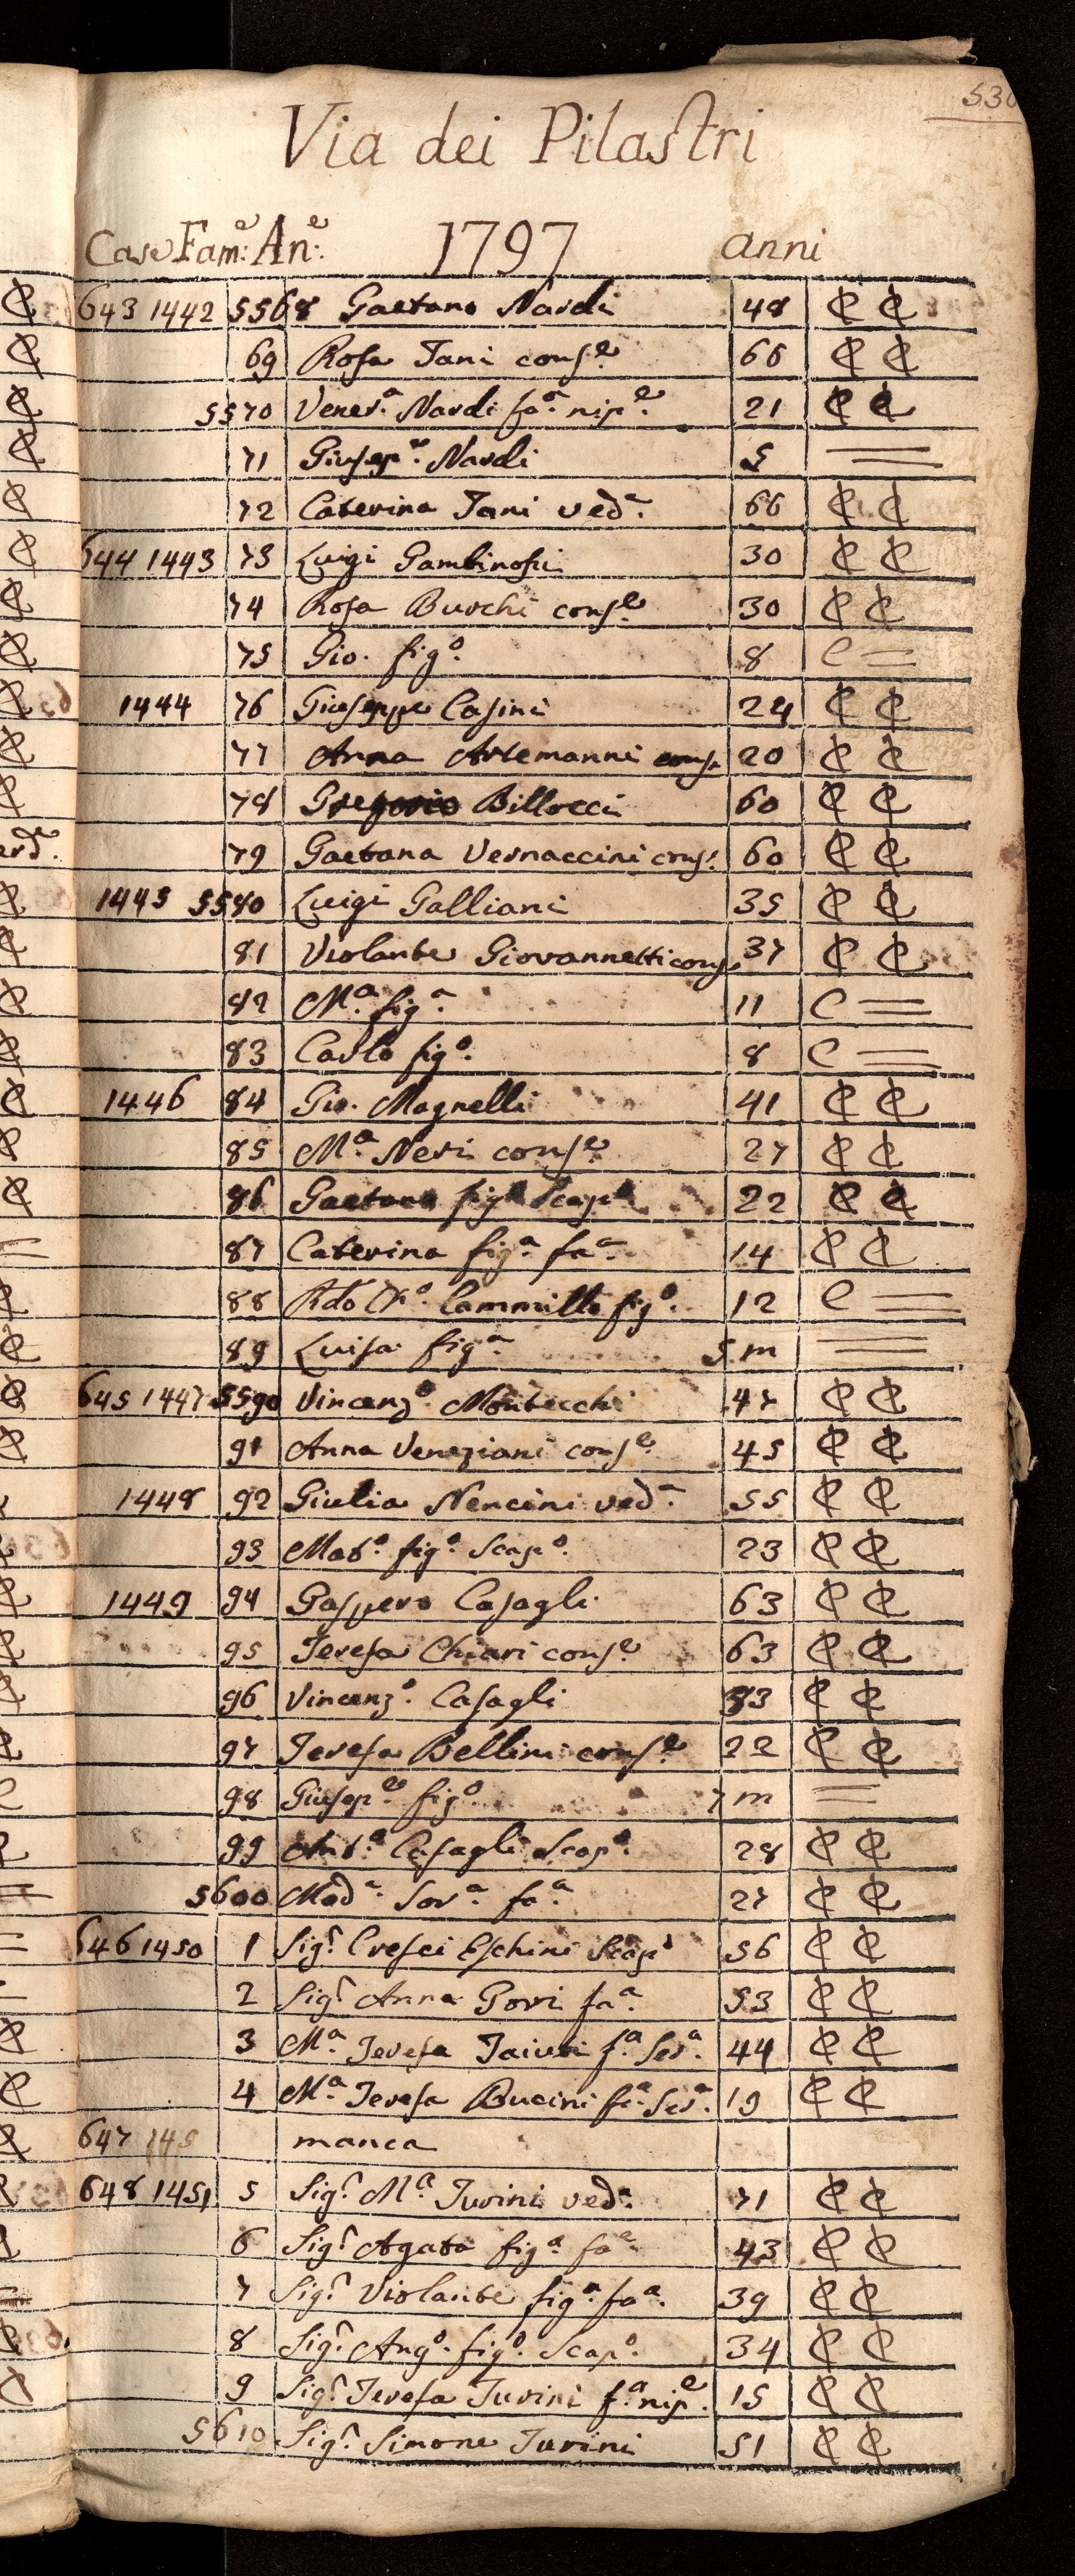 530
Via dei Pilastri
Case Fam:e An:e 1797 anni
643 1442 5568 Gaetano Nardi 48 C C
69 Rosa Tani cons.e 66 C C
5570 Vener.a Nardi fa.a nip.e 21 C C
71 Giusep.e Nardi 5 =
72 Caterina Tani ved.a 66 C C
644 1443 73 Luigi 30 C C
74 Rosa Burchi cons.e 30 C C
75 Gio. fig.o 8 C =
1444 76 Giuseppe Casini 24 C C
77 Anna Artemanni cons. 20 C C
78 Gregorio Billocci 60 C C
79 Gaetana Vernaccini cons. 60 C C
1445 5580 Luigi Galliani 35 C C
81 Violante Giovannetti cons. 37 C C
82 M.a fig.a 11 C =
83 Carlo fig.o 8 C =
1446 84 Gio. Magnelli 41 C C
85 M.a Neri cons.e 27 C C
86 Gaetano fig.o Scap.o 22 C C
87 Caterina fig.a fa.a 14 C C
88 Rdo Ch.o Cammillo fig.o 12 C =
89 Luisa fig.a 5 m =
645 1447 5590 Vincenz.o Montecchi 47 C C
91 Anna Veneziani cons.e 45 C C
1448 92 Giulia Nencini ved.a 55 C C
93 Mat.o fig.o Scap.o 23 C C
1449 94 Gaspero Casagli 63 C C
95 Teresa Chiari cons.e 63 C C
96 Vincenz.o Casagli 33 C C
97 Teresa Bellini cons.e 22 C C
98 Giusep.e fig.o 7 m =
99 Ant.o Casagli Scap.o 28 C C
5600 Mad.a Sor.a fa.a 27 C C
646 1450 1 Sig.r Cresci Eschini Scap.o 56 C C
2 Sig.r Anna Gori fa.a 53 C C
3 M.a Teresa f.a Ser.a 44 C C
4 M.a Teresa Bucini fa.a Ser.a 19 C C
647 145 manca
648 1451 5 Sig.r M.a Turini ved.a 71 C C
6 Sig.r Agata fig.a fa.a 43 C C
7 Sig.r Violante fig.a fa.a 39 C C
8 Sig.r Ang.o fig.o Scap.o 34 C C
9 Sig.r Teresa Turini f.a nip.e 15 C C
5610 Sig.r Simone Turini 51 C C